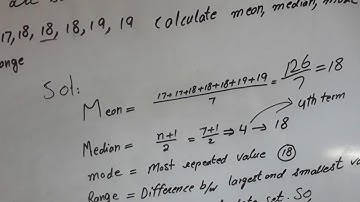 17,18, 18, 18, 19, 19 Calculate mean, median, mode
Sol:
Mean = 17+17+18+18+18+19+19 / 7 = 126 / 7 = 18
Median = n+1 / 2 = 7+1 / 2 ⇒ 4 → 18 4th term
mode = Most repeated value (18)
Range = Difference b/w largest and smallest va
data set. So,